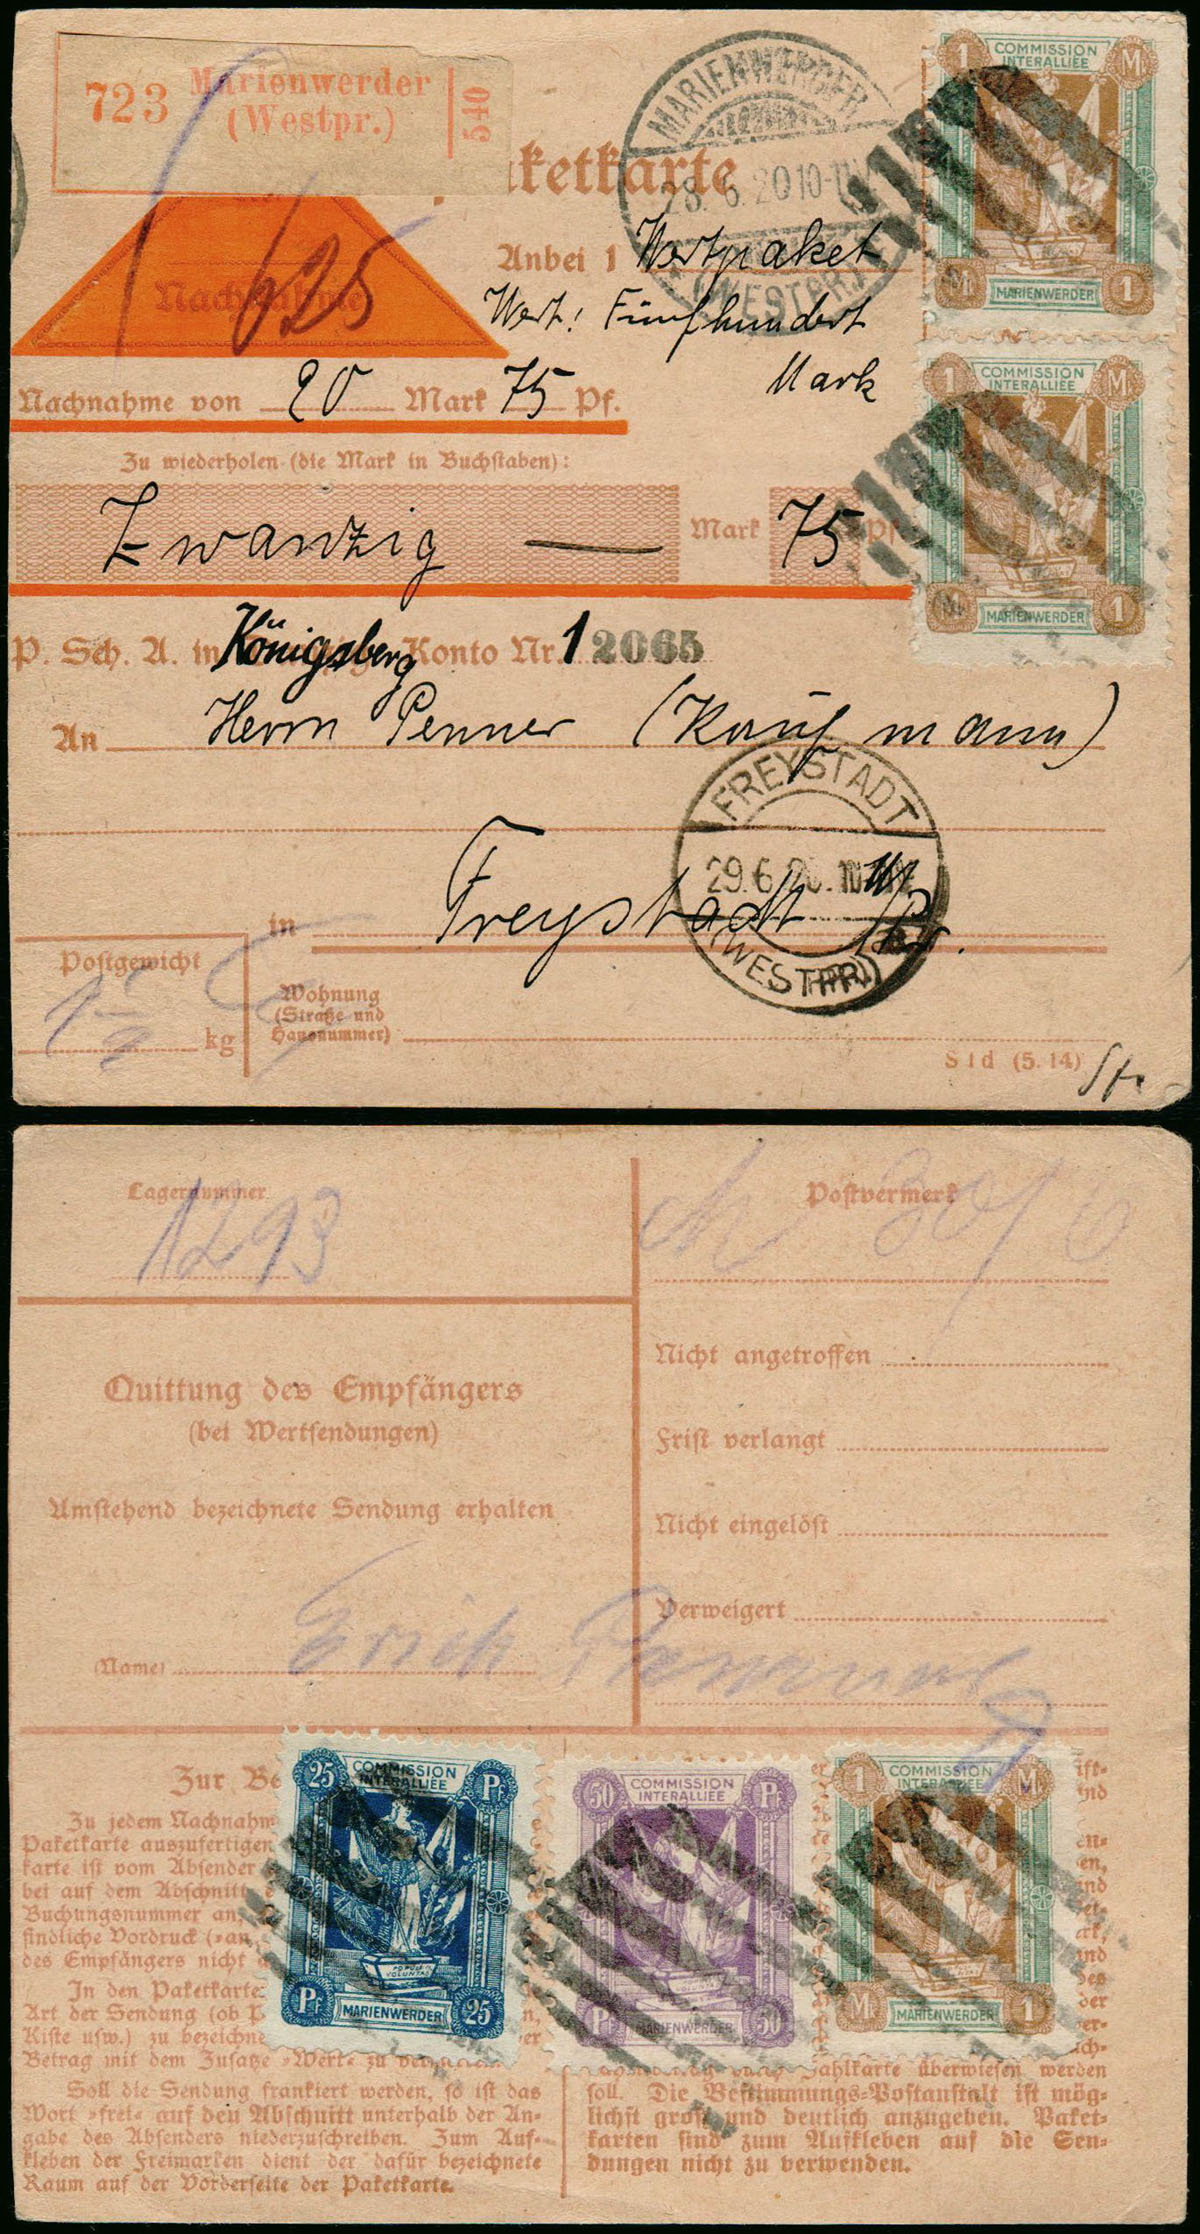 723 Marienwerder
(Westpr.)
540
Paketkarte
MARIENWERDER
28.6.20 10-11V
(WESTPR.)
COMMISSION
INTERALLIÉE
1 M.
M. 1
MARIENWERDER
625
Nachnahme
Anbei 1 Wertpaket
Wert: Fünfhundert
Mark
Nachnahme von 20 Mark 75 Pf.
COMMISSION
INTERALLIÉE
1 M.
M. 1
MARIENWERDER
Zu wiederholen (die Mark in Buchstaben):
Zwanzig — Mark 75 Pf
P. Sch. A. in Königsberg Konto Nr. 12065
An Herrn Penner (Kaufmann)
FREYSTADT
29.6.20.
(WESTPR.)
in Freystadt W/Pr.
Postgewicht
kg
Wohnung
(Straße und
Hausnummer)
S1d (5.14)
Lagernummer
1293
Postvermerk
30/6
Nicht angetroffen
Quittung des Empfängers
(bei Wertsendungen)
Frist verlangt
Umstehend bezeichnete Sendung erhalten
Nicht eingelöst
Verweigert
(Name) Erich
25 COMMISSION INTERALLIÉE Pf
POPULI
VOLUNTAS
Pf MARIENWERDER 25
50 COMMISSION INTERALLIÉE Pf
Pf MARIENWERDER 50
1 COMMISSION INTERALLIÉE M.
M. MARIENWERDER 1
Zur Be
Zu jedem Nachnahm
Paketkarte auszufertigen
karte ist vom Absender
bei auf dem Abschnitt
Buchungsnummer an
findliche Vordruck (»an
des Empfängers nicht
In den Paketkarte
Art der Sendung (ob P
Kiste usw.) zu bezeichne
Betrag mit dem Zusatze »Wert« zu
Soll die Sendung frankiert werden, so ist das
Wort »frei« auf den Abschnitt unterhalb der An-
gabe des Absenders niederzuschreiben. Zum Auf-
kleben der Freimarken dient der dafür bezeichnete
Raum auf der Vorderseite der Paketkarte.
Zahlkarte überwiesen werden
soll. Die Bestimmungs-Postanstalt ist mög-
lichst groß und deutlich anzugeben. Paket-
karten sind zum Aufkleben auf die Sen-
dungen nicht zu verwenden.